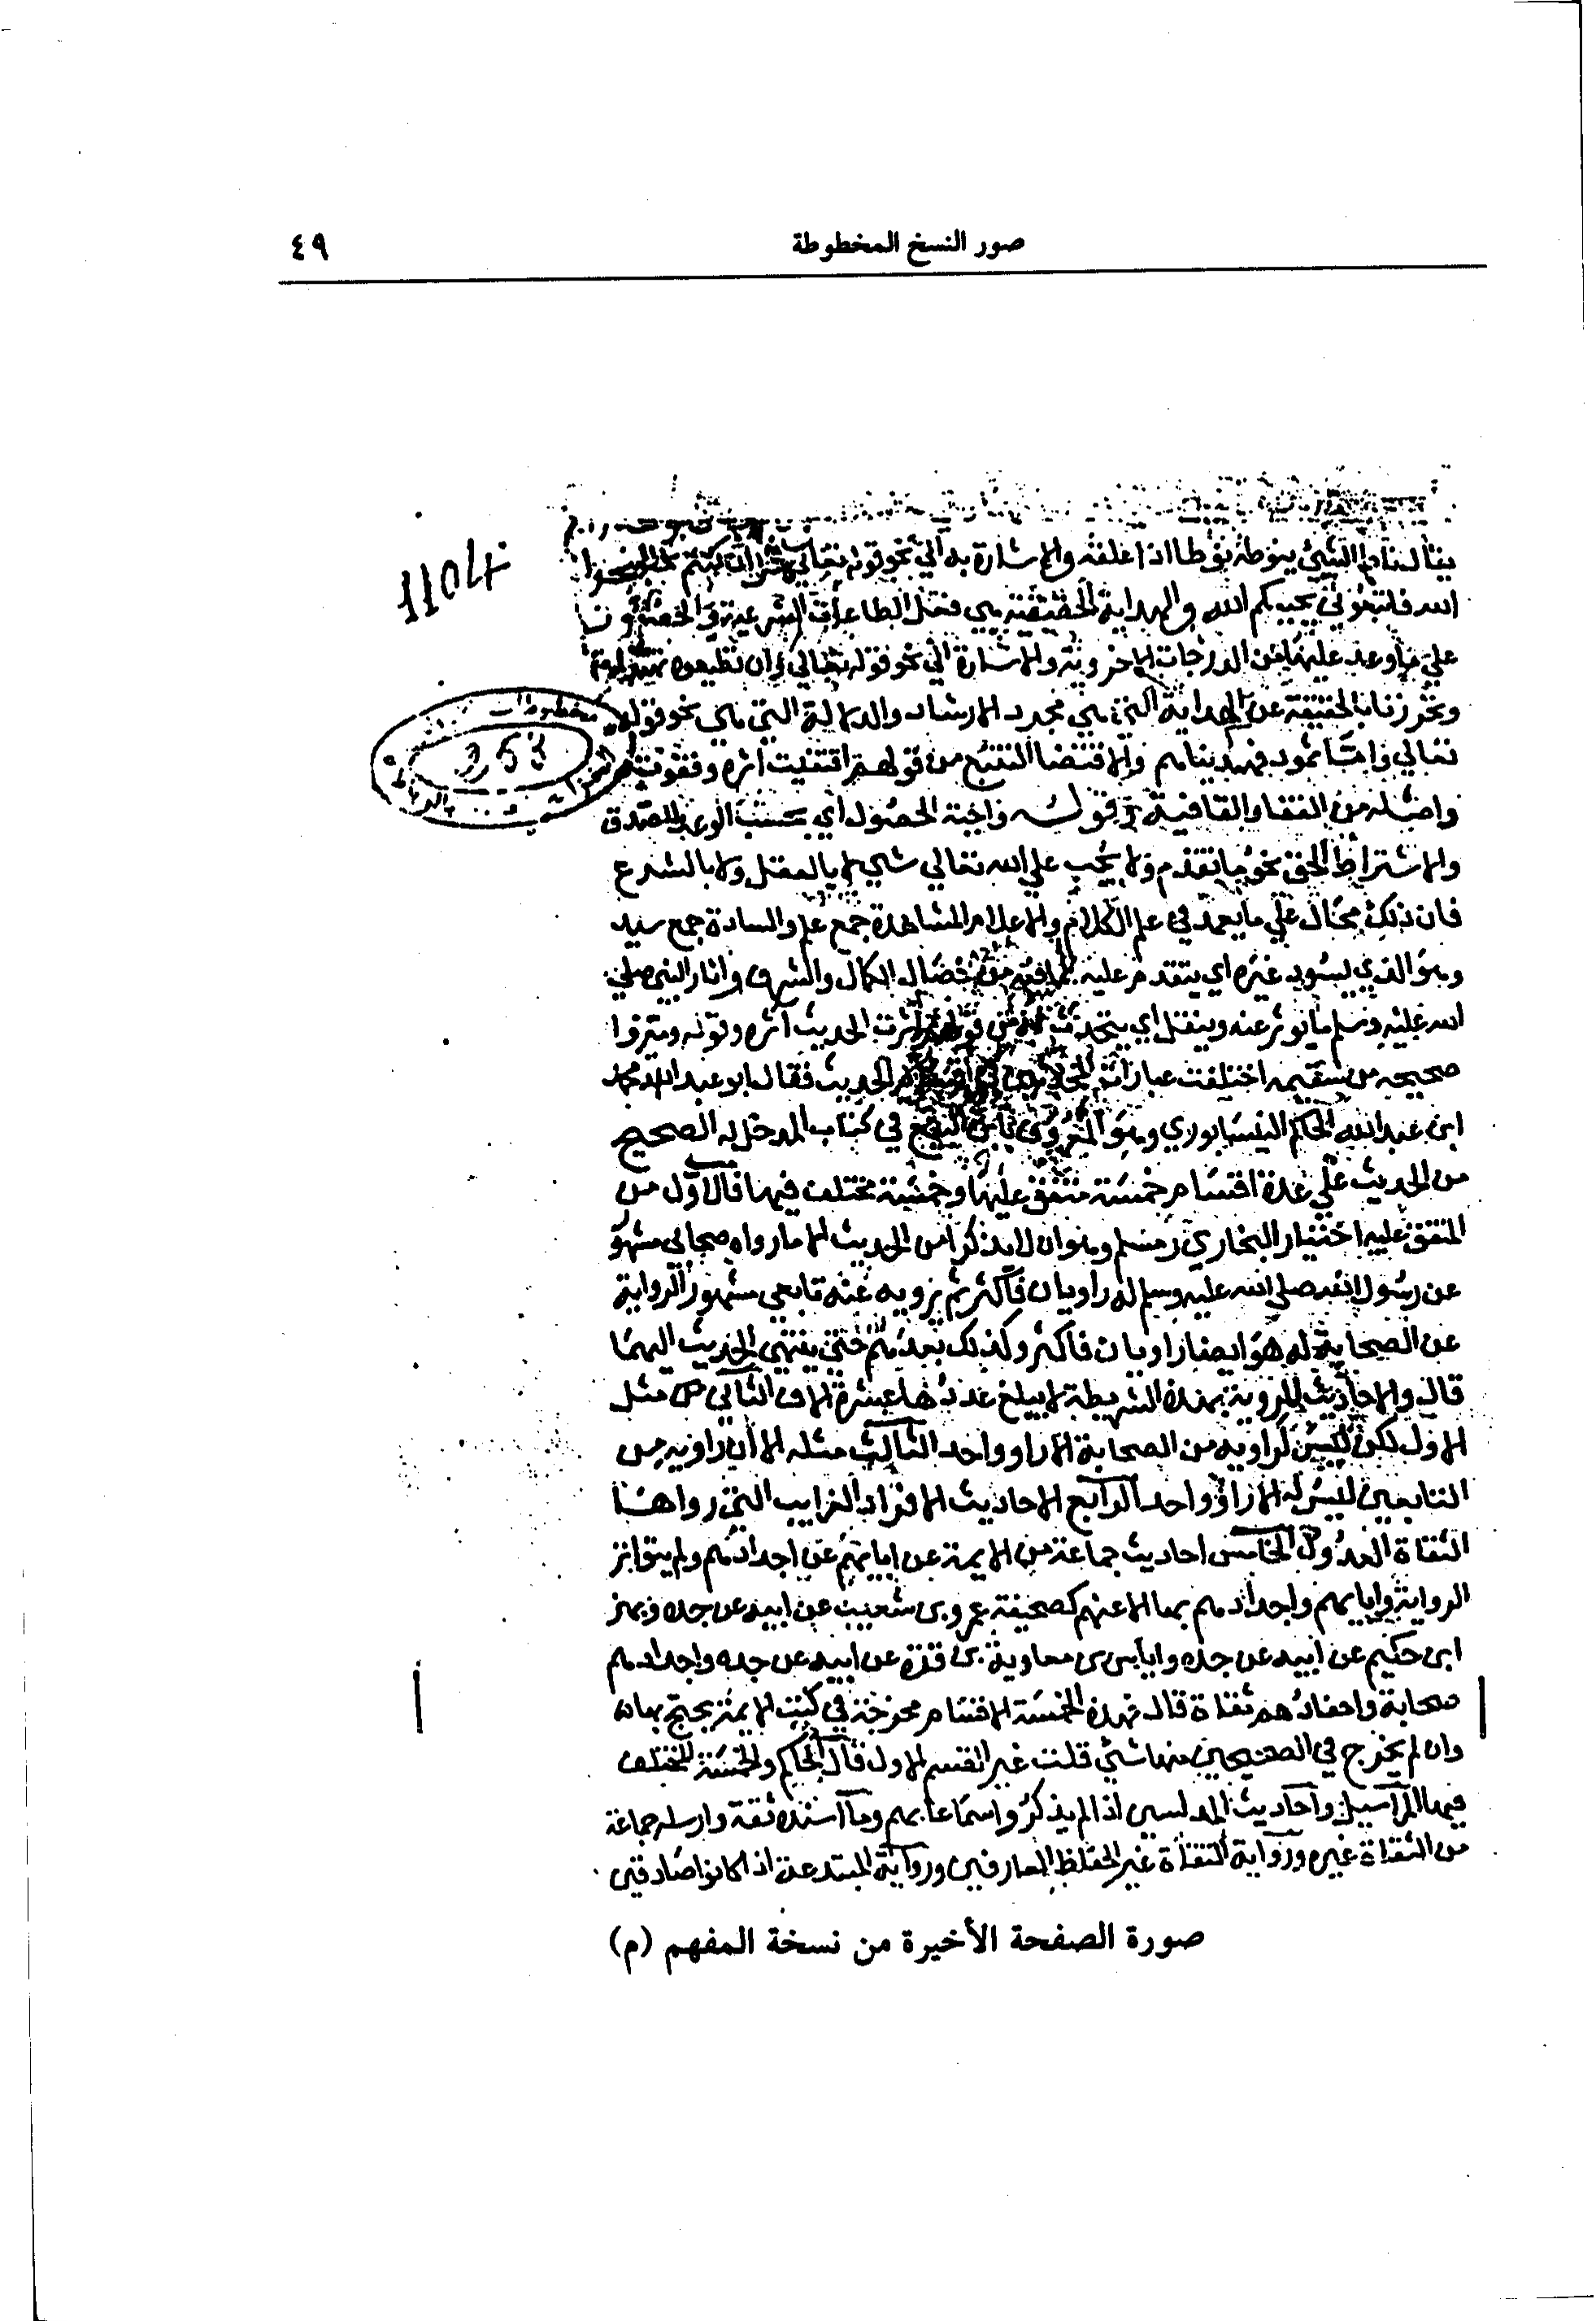 صور النسخ المخطوطة
٤٩
1104
يقال ناط الشيئ ينوطه نوطا اذا علقه والاشارة به الي نحو قوله تعالي ان كنتم تحبون
الله فاتبعوني يحببكم الله والهداية الحقيقية هي فعل الطاعات الشرعية
علي ما وعد عليها من الدرجات الاخروية والاشارة الي نحو قوله تعالي وان تطيعوه تهتدوا
وتحرزنا بالحقيقة عن الهداية التي هي مجرد الارشاد والدلالة التي هي نحو قوله
تعالي واما ثمود فهديناهم والاقتفا التتبع من قولهم اقتفيت اثره وقفوته
واصله من القفا والقافية وقوله واجبة الحصول اي بحسب الوعد الصدق
والاشتراط الحق نحو ما تقدم ولا يجب علي الله تعالي شي لا بالعقل ولا بالشرع
فان ذلك محال علي ما يعهد في علم الكلام والاعلام المشاهدة جمع علم والسادة جمع سيد
وهو الذي يسود غيره اي يتقدم عليه بما فيه من خصال الكمال والشرف واثار النبي صلي
الله عليه وسلم ما يوثر عنه وينقل اي يتحدث به من قولهم اثرت الحديث آثره وقوله وميزوا
صحيحه من سقيمه اختلفت عبارات الحديث فقال ابو عبد الله محمد
ابن عبد الله الحاكم النيسابوري وهو المعروف بابن البيع في كتاب المدخل له الصحيح
من الحديث علي عدة اقسام خمسة متفق عليها وخمسة مختلف فيها فالاول من
المتفق عليه اختيار البخاري ومسلم وهو ان لا يذكرا من الحديث الا ما رواه صحابي مشهو
عن رسول الله صلي الله عليه وسلم له راويان فاكثر ثم يرويه عنه تابعي مشهور الرواية
عن الصحابة له هو ايضا راويان فاكثر وكذلك بعدهم حتي ينتهي الحديث اليهما
قال والاحاديث المروية بهذه الشريطة لا يبلغ عددها عشرة الاف الثاني مثل
الاول لكن ليس لراويه من الصحابة الا راو واحد الثالث مثله الا ان راويه من
التابعين ليس له الا راو واحد الرابع الاحاديث الافراد الغرايب التي رواها
الثقاة العدول الخامس احاديث جماعة من الايمة عن ابايهم عن اجدادهم ولم يتواتر
الرواية وابايهم واجدادهم بها الا عنهم كصحيفة عمرو بن شعيب عن ابيه عن جده وبهز
ابن حكيم عن ابيه عن جده واياس بن معاوية بن قرة عن ابيه عن جده واجدادهم
صحابة واحفادهم ثقاة قال فهذه الخمسة الاقسام مخرجة في كتب الايمة يحتج بها
وان لم يخرج في الصحيحين منها شئي قلت غير القسم الاول قال الحاكم والخمسة المختلف
فيها المراسيل واحاديث المدلسين اذا لم يذكروا سماعاتهم وما اسنده ثقة وارسله جماعة
من الثقاة غيره ورواية الثقاة غير الحفاظ العارفين ورواية المبتدعة اذا كانوا صادقين
صورة الصفحة الأخيرة من نسخة المفهم (م)